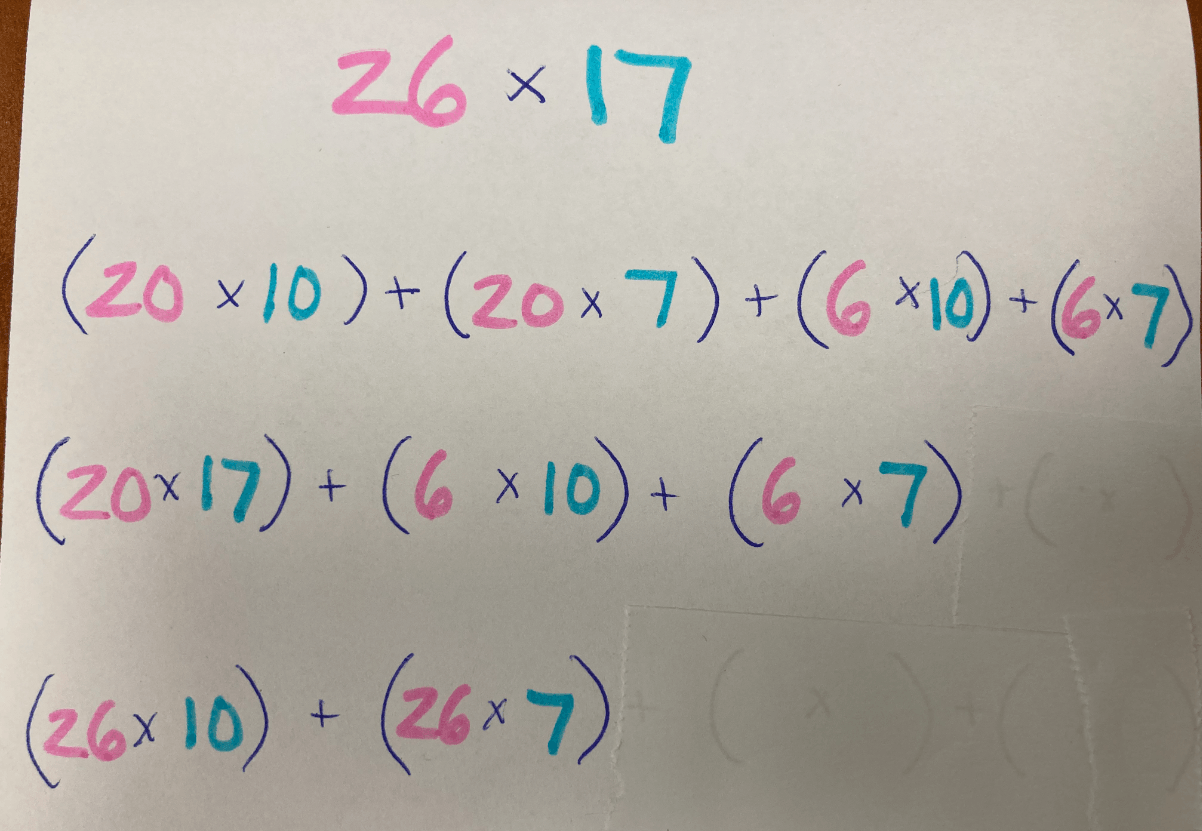 26 × 17
(20 × 10) + (20 × 7) + (6 × 10) + (6 × 7)
(20 × 17) + (6 × 10) + (6 × 7) + ( × )
(26 × 10) + (26 × 7) + ( × ) + (